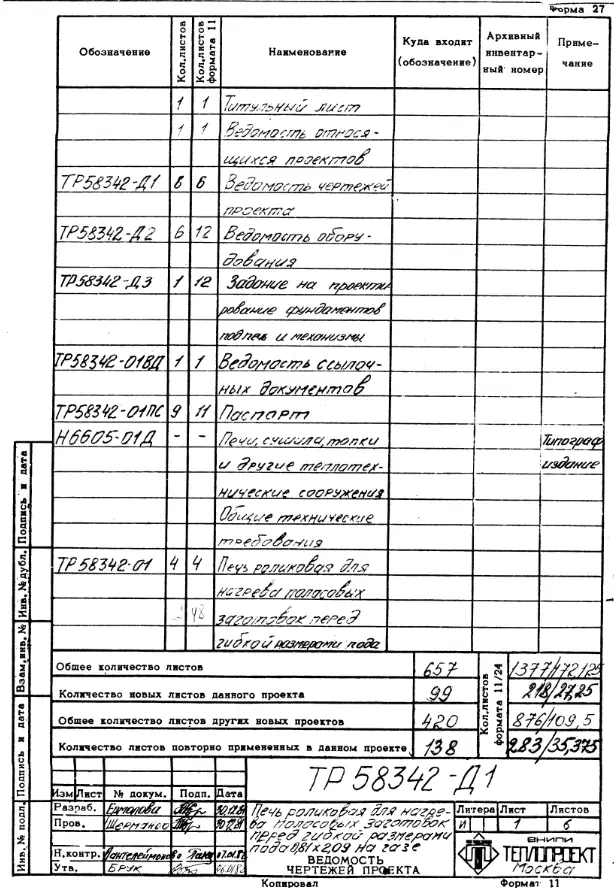 Форма 27
Обозначение
Кол.листов
Кол.листов формата 11
Наименование
Куда входит (обозначение)
Архивный инвентарный номер
Примечание
1 1 Титульный лист
1 1 Ведомость относя-
щихся проектов
ТР58342-Д1 8 6 Ведомость чертежей
проекта
ТР58342-Д2 6 12 Ведомость обору-
дования
ТР58342-Д3 1 12 Задание на проекти
рование фундаментов
под печь и механизмы
ТР58342-01ВД 1 1 Ведомость ссылоч-
ных документов
ТР58342-01ПС 9 11 Паспорт
Н6605-01Д - - Печи, сушила, топки Типограф
и другие теплотех- издание
нические сооружения
Общие технические
требования
ТР58342-01 4 4 Печь роликовая для
нагрева полосовых
48 заготовок перед
гибкой размерами пода
Общее количество листов 657
Количество новых листов данного проекта 99
Общее количество листов других новых проектов 420
Количество листов повторно примененных в данном проекте 138
Кол.листов формата 11/24
1377/172,125
218/27,25
876/109,5
283/35,375
Подпись и дата
Инв. № дубл.
Взам.инв. №
Подпись и дата
Инв. № подл.
ТР 58342-Д1
Изм Лист № докум. Подп. Дата
Разраб. Ермолова
Пров.
Н.контр. Пантелеймонова
Утв. БРУК
Печь роликовая для нагре-
ва полосовых заготовок
перед гибкой размерами
пода 0,81х2,09 на газе
ВЕДОМОСТЬ
ЧЕРТЕЖЕЙ ПРОЕКТА
Литера Лист Листов
И 1 6
ВНИПИ
ТЕПЛОПРОЕКТ
Москва
Копировал
Формат 11